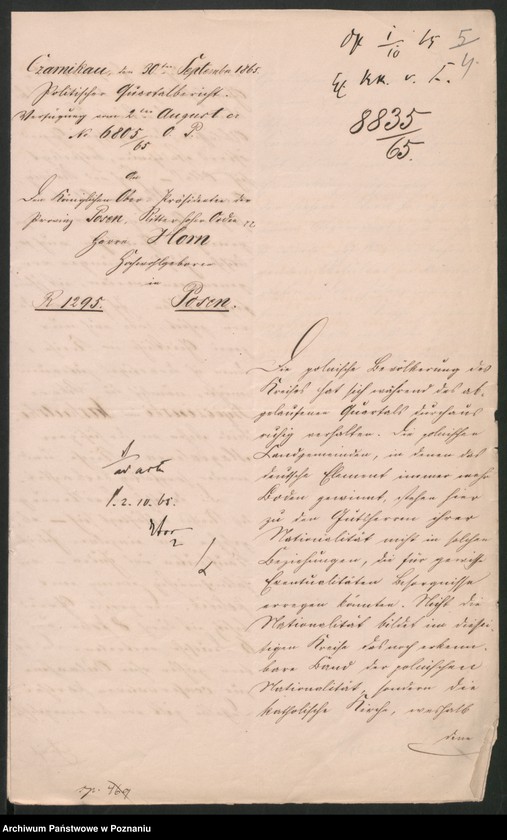 Czarnikau, den 30ten September 1865.
Politischer Quartalbericht.
Verfügung vom 2ten August cr
No 6805/65 O. P.
An
Den Königlichen Ober-Präsidenten der
Provinz Posen, Ritter hoher Orden
Herrn Horn
Hochwohlgeboren
in
R 1295. Posen.
1/10 65
5/4
8835/65.
Die polnische Bevölkerung des
Kreises hat sich während des ab-
gelaufenen Quartals durchaus
ruhig verhalten. Die polnischen
Landgemeinden, in denen das
deutsche Element immer mehr
Boden gewinnt, stehen hier
zu den Gutsherrn ihrer
Nationalität nicht in solchen
Beziehungen, die für gewisse
Eventualitäten Besorgnisse
erregen könnten. Nicht die
Nationalität bildet im diessei-
tigen Kreise das noch erkenn-
bare Band der polnischen
Nationalität, sondern die
katholische Kirche, weshalb
denn
ad acta
P. 2. 10. 65.
Archiwum Państwowe w Poznaniu